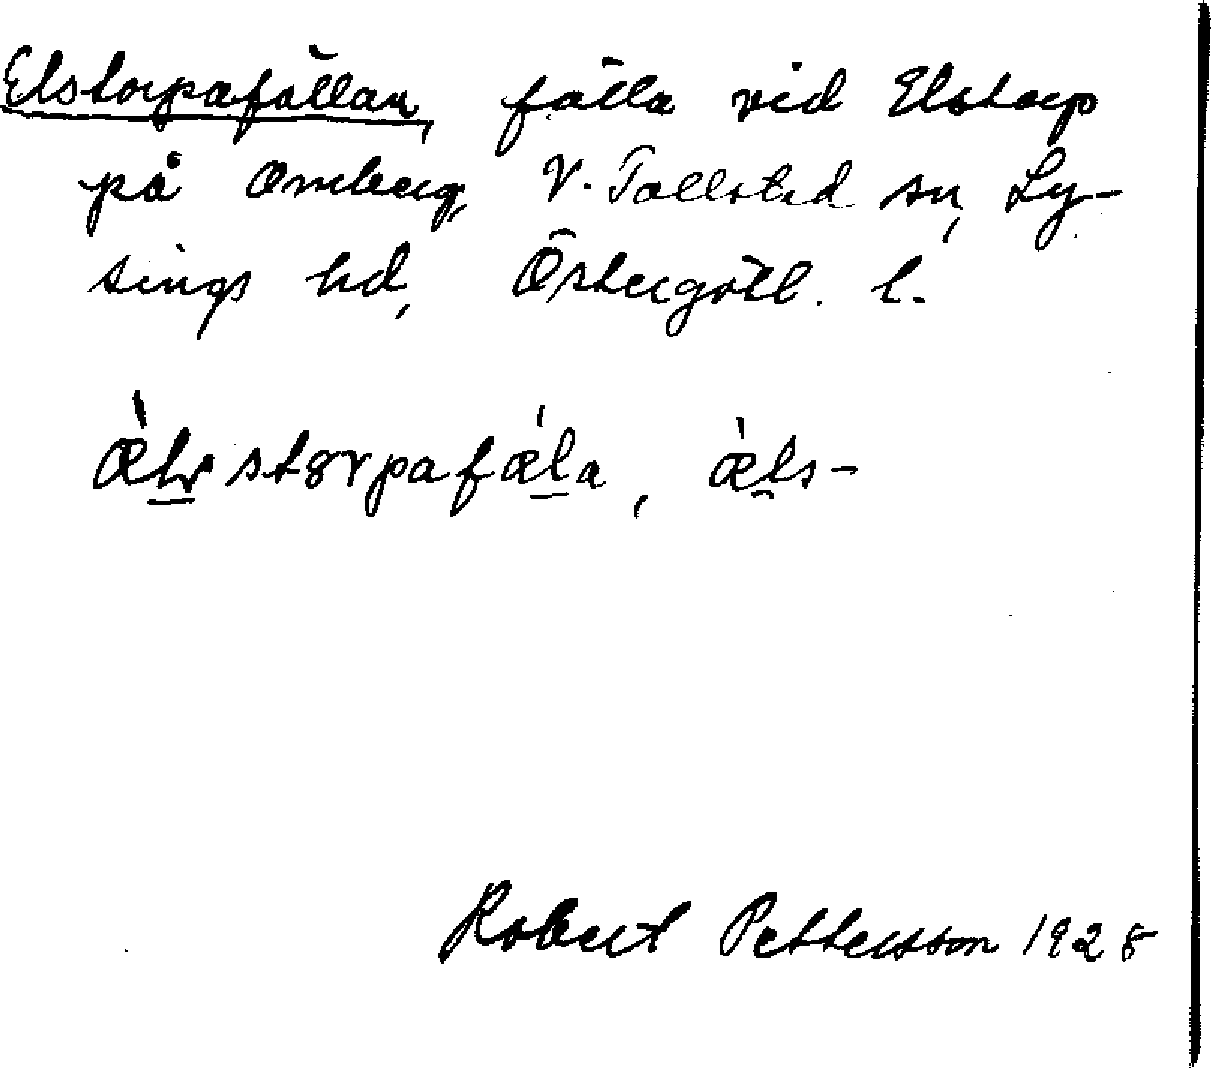 Elstorpafällan, fälla vid Elstorp
på Omberg, V. Tollstad sn, Ly-
sings hd, Östergötl. l.
æ̀lvstørpafæ̀la, æ̀ls-
Robert Pettersson 1928